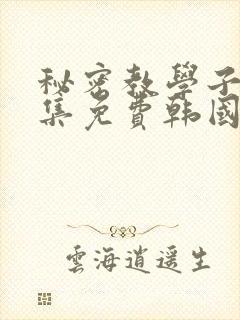 秘密教學子
集免費韩國
雲海逍遥生